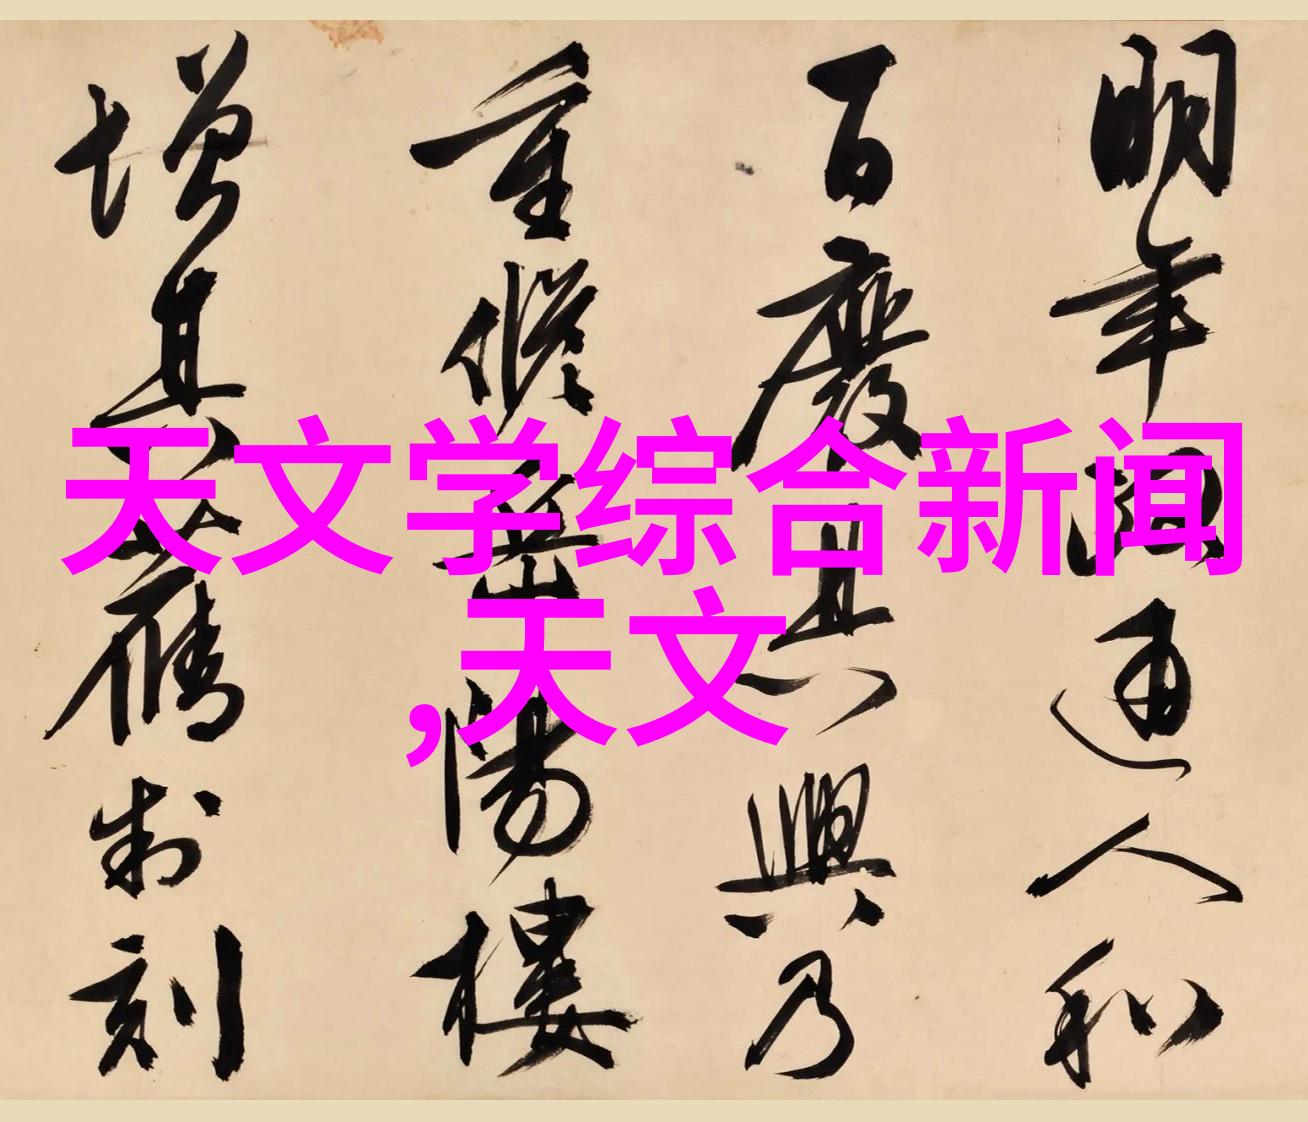 天文学综合新闻
,天文
明年通人和
百廢具興乃
重修岳陽樓
增其舊制刻